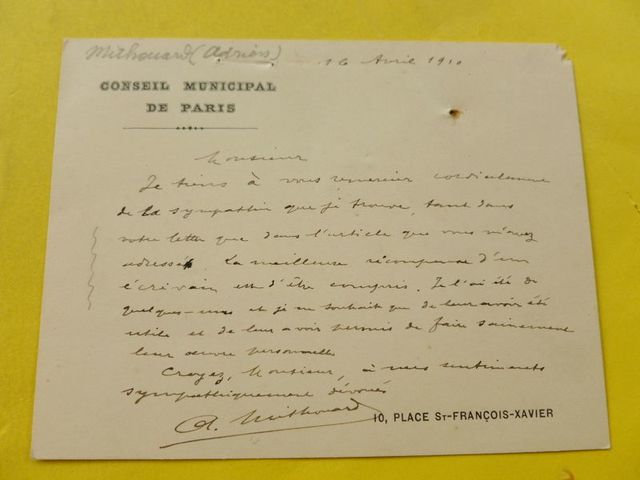 Mithouard (Adrien)
16 Avril 1910
CONSEIL MUNICIPAL
DE PARIS
Monsieur
Je tiens à vous remercier cordialement
de la sympathie que je trouve, tant dans
votre lettre que dans l'article que vous m'avez
adressé. La meilleure récompense d'un
écrivain est d'être compris. Je l'ai été de
quelques-uns et je ne souhaite que de leur avoir été
utile et de leur avoir permis de faire sainement
leur œuvre personnelle
Croyez, Monsieur, à mes sentiments
sympathiquement dévoués
A. Mithouard
10, PLACE ST-FRANÇOIS-XAVIER